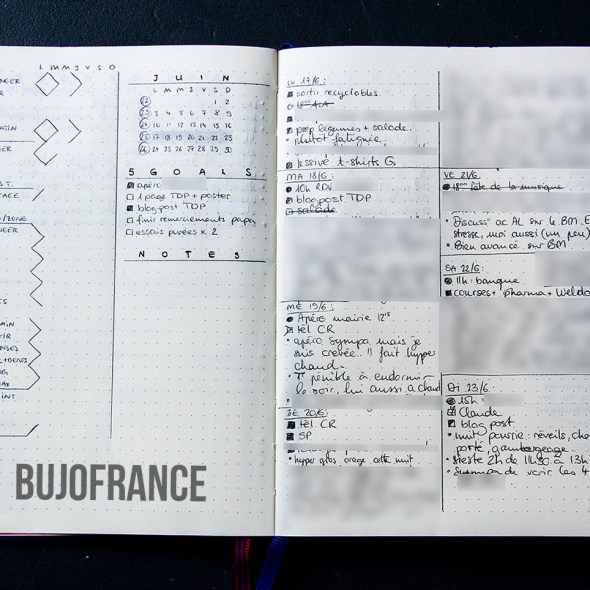 L M M J V S D
NGER
ER
ATIN
ER
ST.
AGE
/ZONE
NGER
ES
AIN
TIR
NSES
+DENTS
OG
AX
INT
JUIN
L M M J V S D
22 1 2
23 3 4 5 6 7 8 9
24 10 11 12 13 14 15 16
25 17 18 19 20 21 22 23
26 24 25 26 27 28 29 30
5 GOALS
apéro
1 page TDP + poster
blog post TDP
finir remerciements papy
essais purées x 2
NOTES
LU 17/6:
sortir recyclables
prep légumes + salade.
plutôt fatiguée
lessive t-shirts G
MA 18/6:
10h RDV
blog post TDP
salade
ME 19/6:
Apéro mairie 12h15
tel CR
apéro sympa mais je
suis crevée. Il fait hyper
chaud.
pénible à endormir
le soir, lui aussi a chaud
JE 20/6:
tel. CR
SP
hyper gros orage cette nuit
VE 21/6:
18h fête de la musique
Discuss° ac AL sur le BM. E
stress, moi aussi (un peu)
Bien avancé sur BM
SA 22/6:
11h: banque
courses + pharma + Weldo
DI 23/6:
15h
Claude
blog post
nuit pourrie: réveils, cho
porté,
sieste 2h de 11h30 à 13h
de voir les 4
BUJOFRANCE